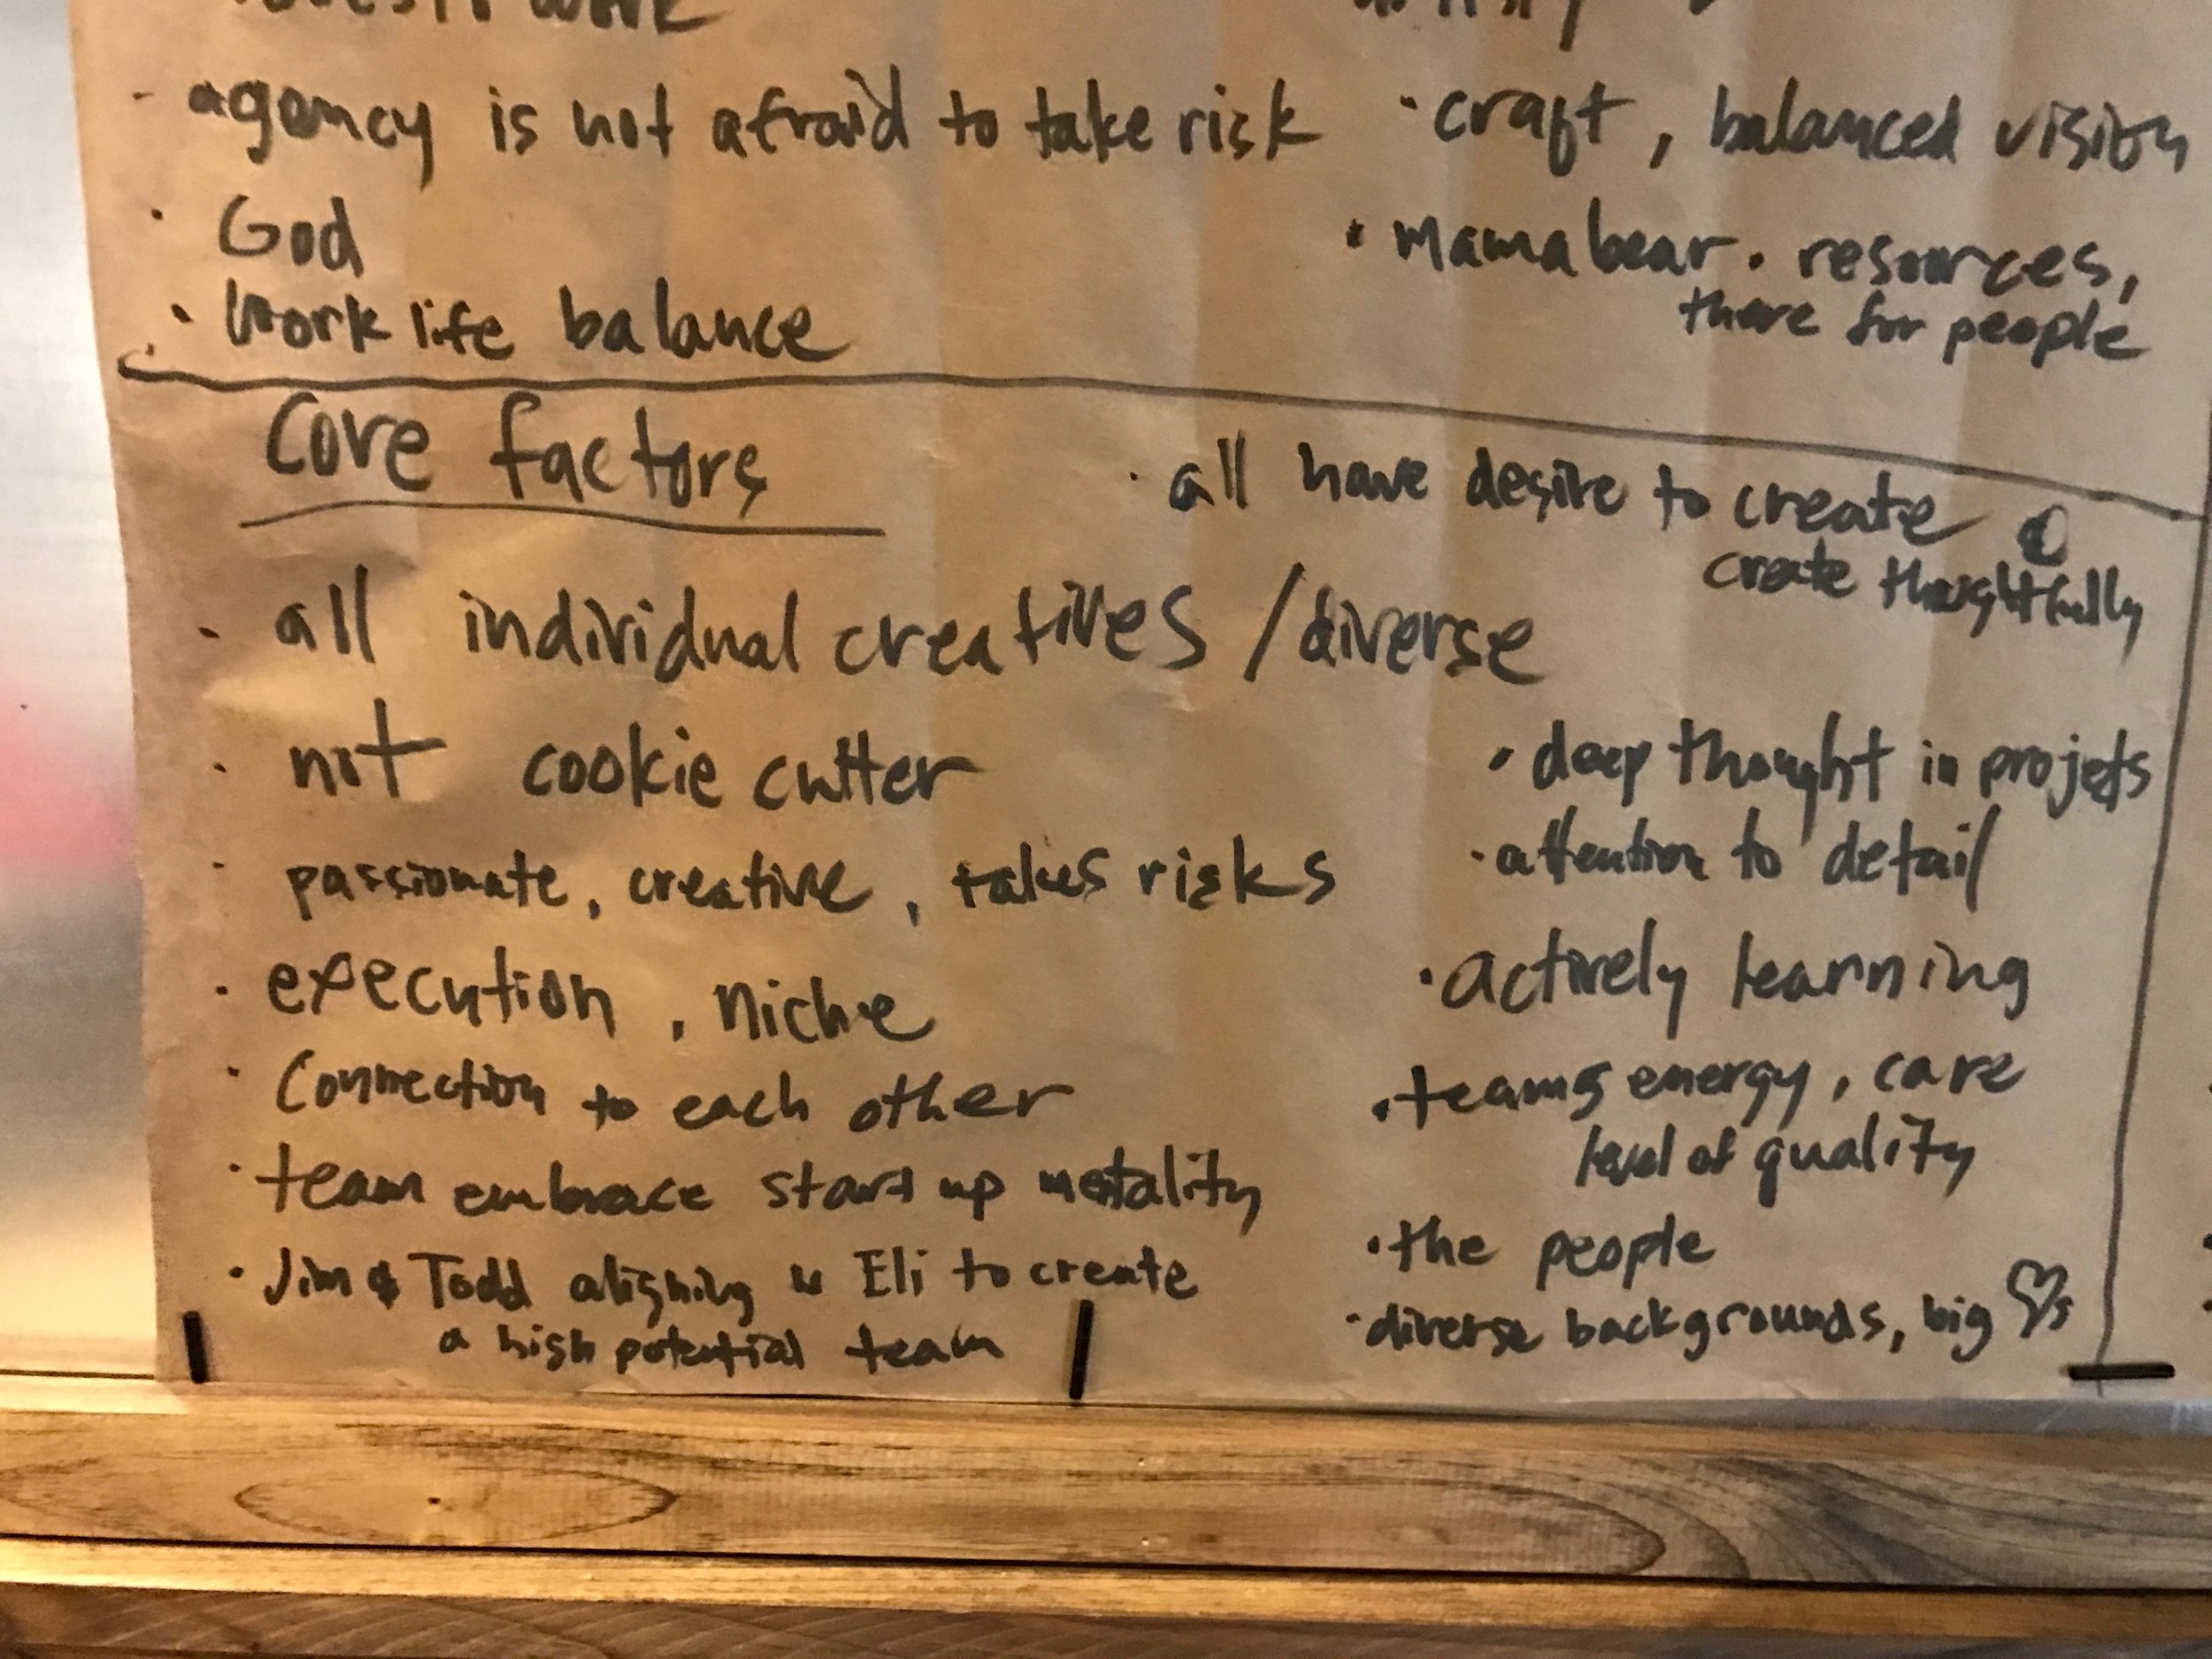 work
- agency is not afraid to take risk
· God
· Work life balance
· craft, balanced vision
· mama bear. resources,
there for people
Core factors
· all individual creatives / diverse
· not cookie cutter
· passionate, creative, takes risks
· execution, niche
· Connection to each other
· team embrace start up metality
· Jim & Todd aligning w Eli to create
a high potential team
· all have desire to create
create thoughtfully
· deep thought in projets
· attention to detail
· actively learning
· teams energy, care
level of quality
· the people
· diverse backgrounds, big ♡s